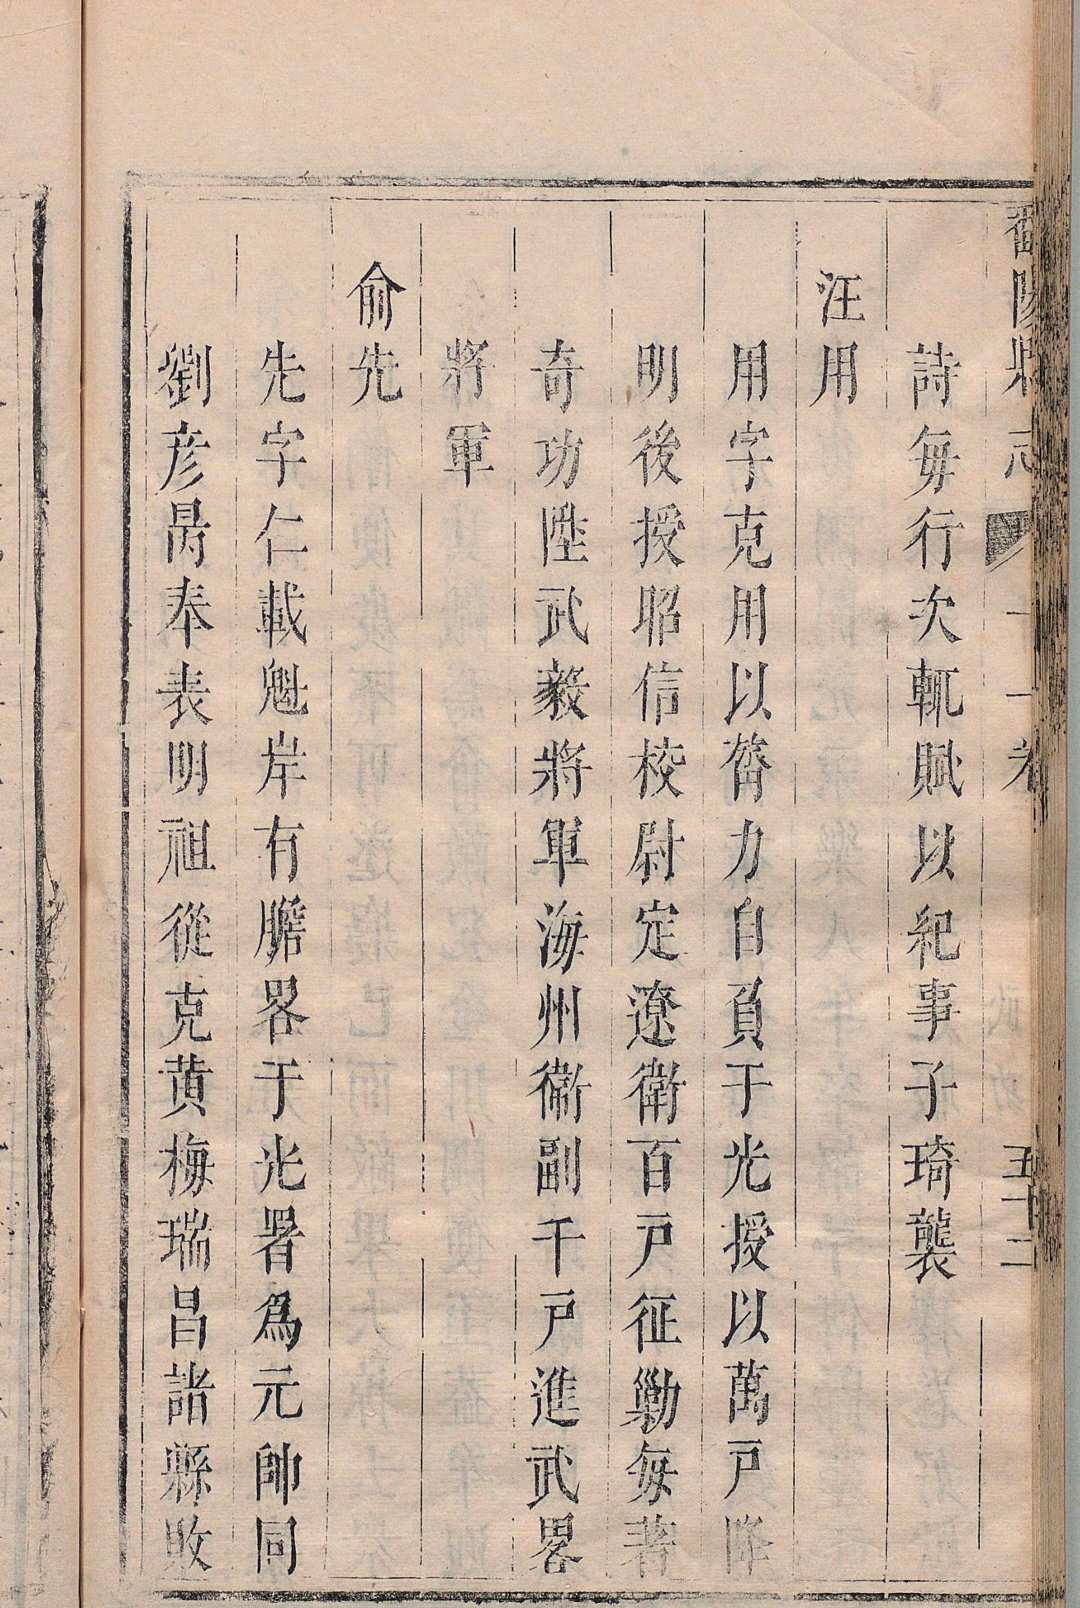 陽縣志 十一卷 五十二
詩每行次輒賦以紀事子琦襲
汪用
用字克用以膂力自負于光授以萬戸降
明後授昭信校尉定遼衛百戸征勦每著
奇功陞武毅將軍海州衞副千戸進武畧
將軍
俞先
先字仁載魁岸有膽畧于光署為元帥同
劉彥昺奉表明祖從克黄梅瑞昌諸縣敗